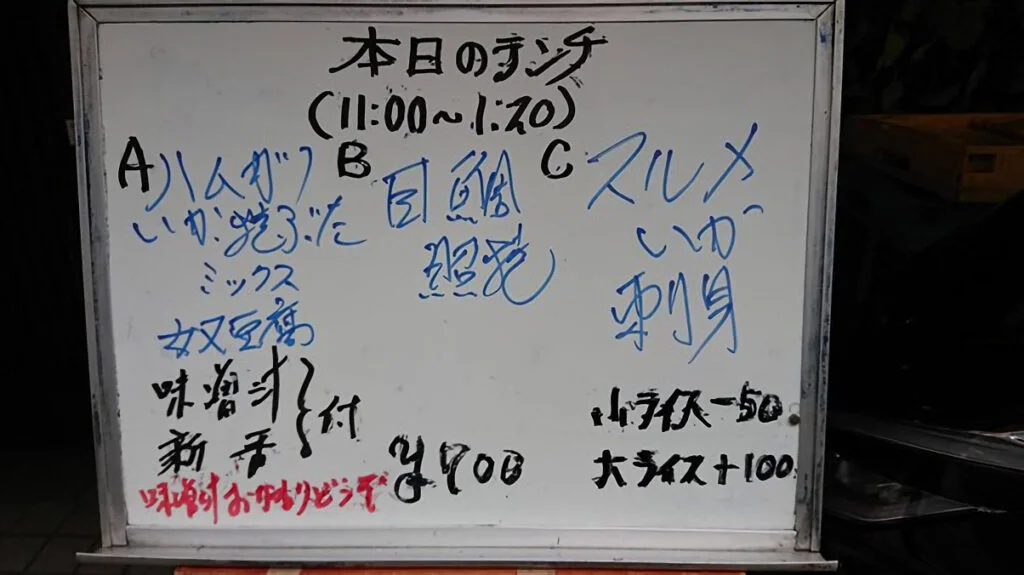 本日のランチ
(11:00~1:20)
A ハムカツ
いか焼うぶた
ミックス
奴豆腐
B 目鯛
照焼
C スルメ
いか
刺身
味噌汁
新香
付
味噌汁おかわりどうぞ
¥900
小ライス-50
大ライス+100